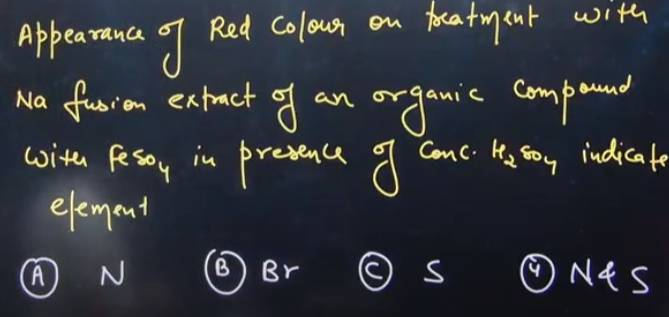 Appearance of Red Colour on treatment with
Na fusion extract of an organic compound
with FeSO4 in presence of Conc. H2SO4 indicate
element
A N B Br C S 4 N & S